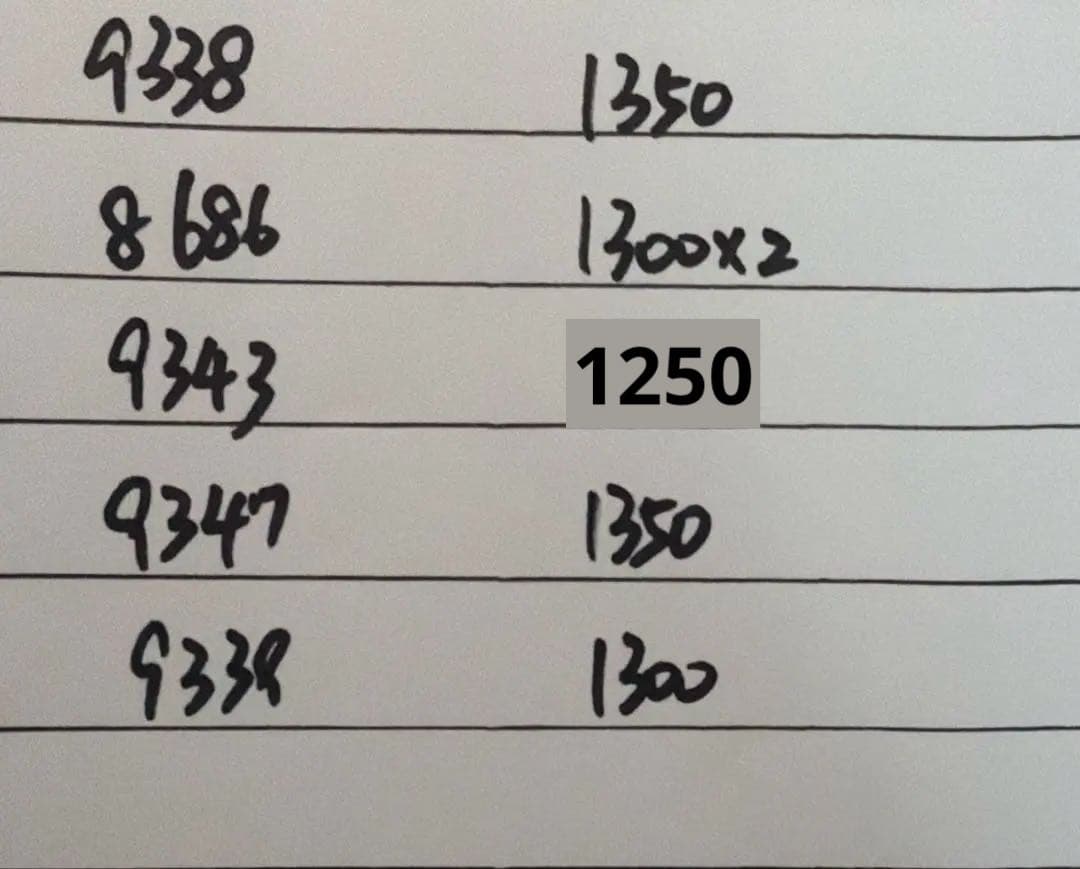 9338 1350
8686 1300x2
9343 1250
9347 1350
9339 1300